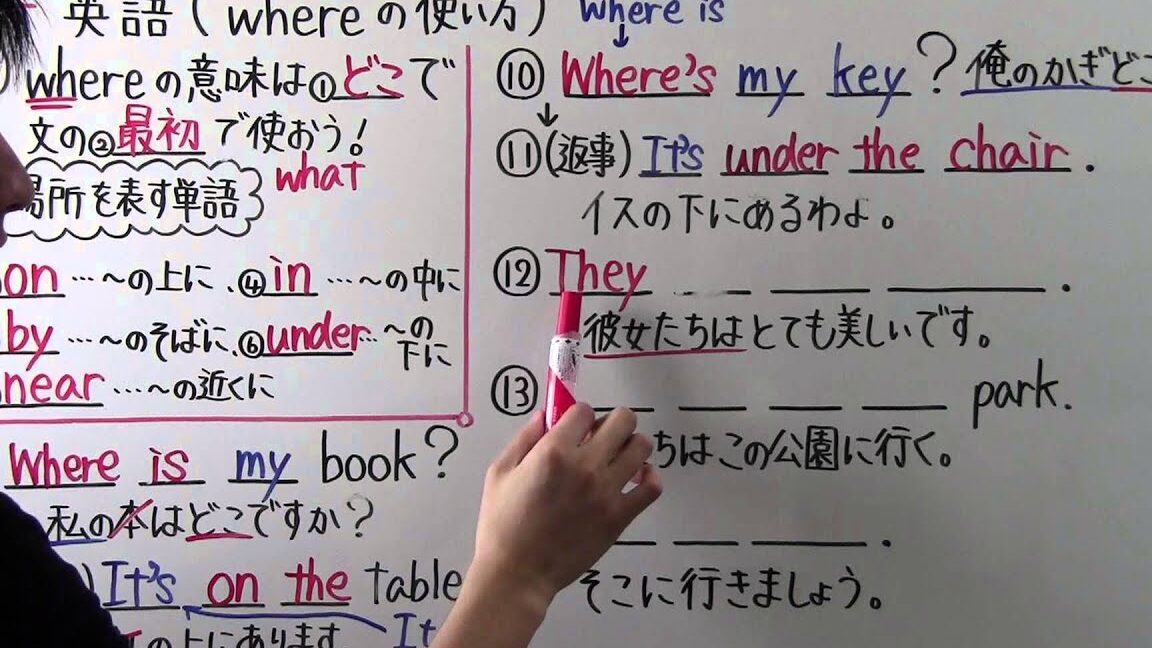 英語(whereの使い方)
whereの意味は①どこで
文の②最初で使おう!
what
場所を表す単語
on…~の上に、④in…~の中に
by…~のそばに、⑥under…~の下に
near…~の近くに
Where is my book?
私の本はどこですか?
It's on the table
の上にあります
It
where is
↓
⑩ Where's my key? 俺のかぎどこ
↓
⑪(返事) It's under the chair.
イスの下にあるわよ。
⑫ They ___ ___ ___.
彼女たちはとても美しいです。
⑬ ___ ___ ___ ___ park.
ちはこの公園に行く。
___ ___ ___.
そこに行きましょう。